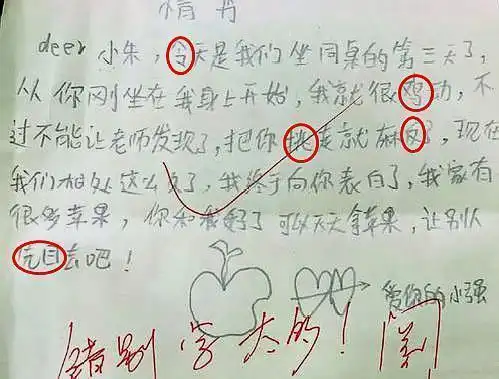 情书
deer 小朱，令天是我们坐同桌的第三天了，
从你刚坐在我身上开始，我就很鸡动，不
过不能让老师发现了，把你挑走就麻反了，现在
我们相处这么久了，我终于向你表白了，我家有
很多苹果，你和我好了可以天天拿苹果，让别人
元目去吧！
爱你的小强
错别字太多！阅